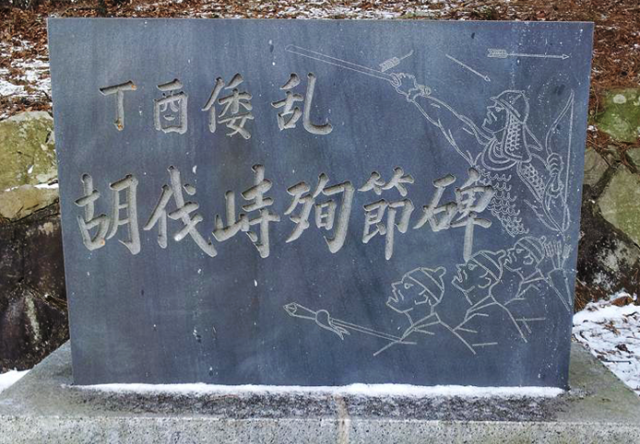 丁酉倭乱
胡伐峙殉節碑